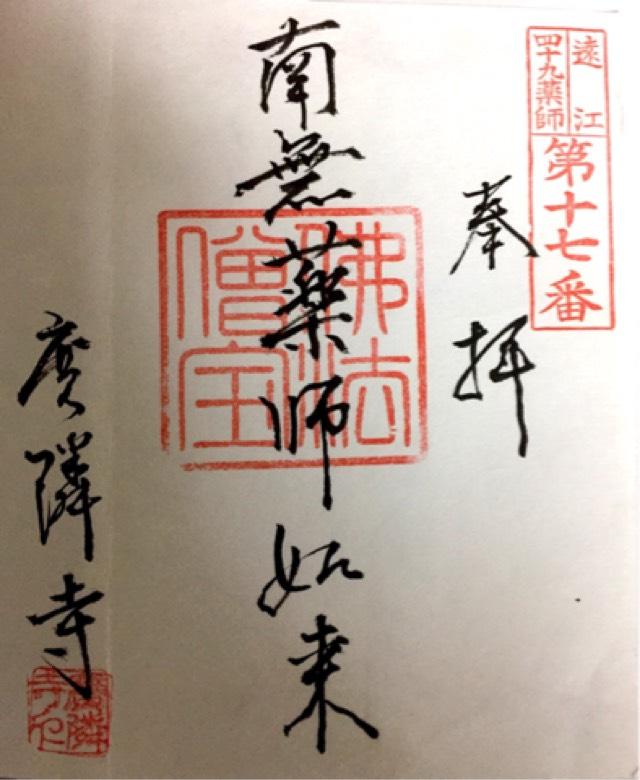 遠江
四十九薬師
第十七番
奉拝
南無薬師如来
佛法
僧宝
廣隣寺
廣隣
寺印